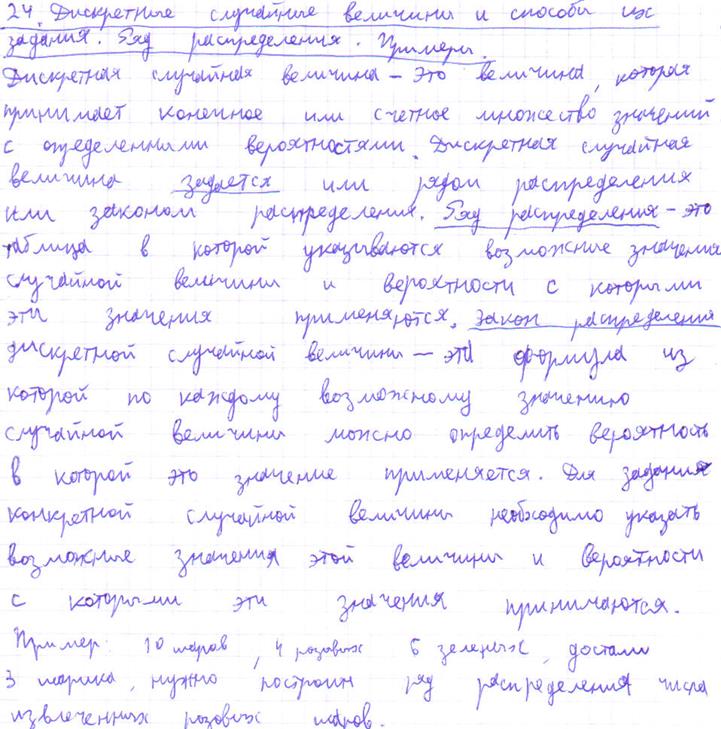 24. Дискретные случайные величины и способы их
задания. Ряд распределения. Примеры.
Дискретная случайная величина – это величина, которая
принимает конечное или счетное множество значений
с определенными вероятностями. Дискретная случайная
величина задается или рядом распределения
или законом распределения. Ряд распределения – это
таблица в которой указываются возможные значения
случайной величины и вероятности с которыми
эти значения применяются. Закон распределения
дискретной случайной величины – это формула из
которой по каждому возможному значению
случайной величины можно определить вероятность
в которой это значение применяется. Для задания
конкретной случайной величины необходимо указать
возможные значения этой величины и вероятности
с которыми эти значения принимаются.
Пример: 10 шаров, 4 розовых 6 зеленых, достали
3 шарика, нужно построим ряд распределения числа
извлеченных розовых шаров.